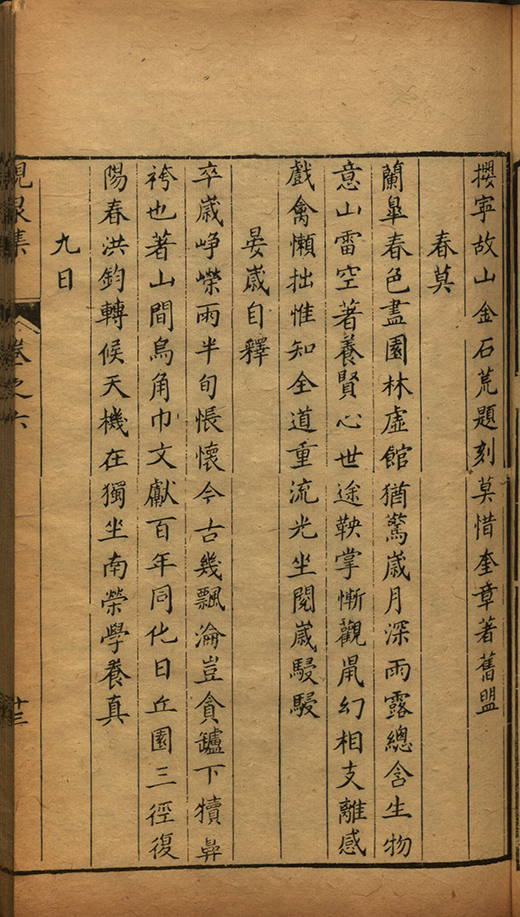 攖寧故山金石荒題刻莫惜奎章著舊盟
春莫
蘭臯春色盡園林虛館猶驚歲月深雨露總含生物
意山雷空著養賢心世途鞅掌慚觀鼠幻相支離感
戲禽懶拙惟知全道重流光坐閱歲駸駸
晏歲自釋
卒歲崢嶸雨半旬悵懷今古幾飄淪豈貪罏下犢鼻
袴也著山間烏角巾文獻百年同化日丘園三徑復
陽春洪鈞轉候天機在獨坐南榮學養真
九日
峴泉集 卷之六 十三